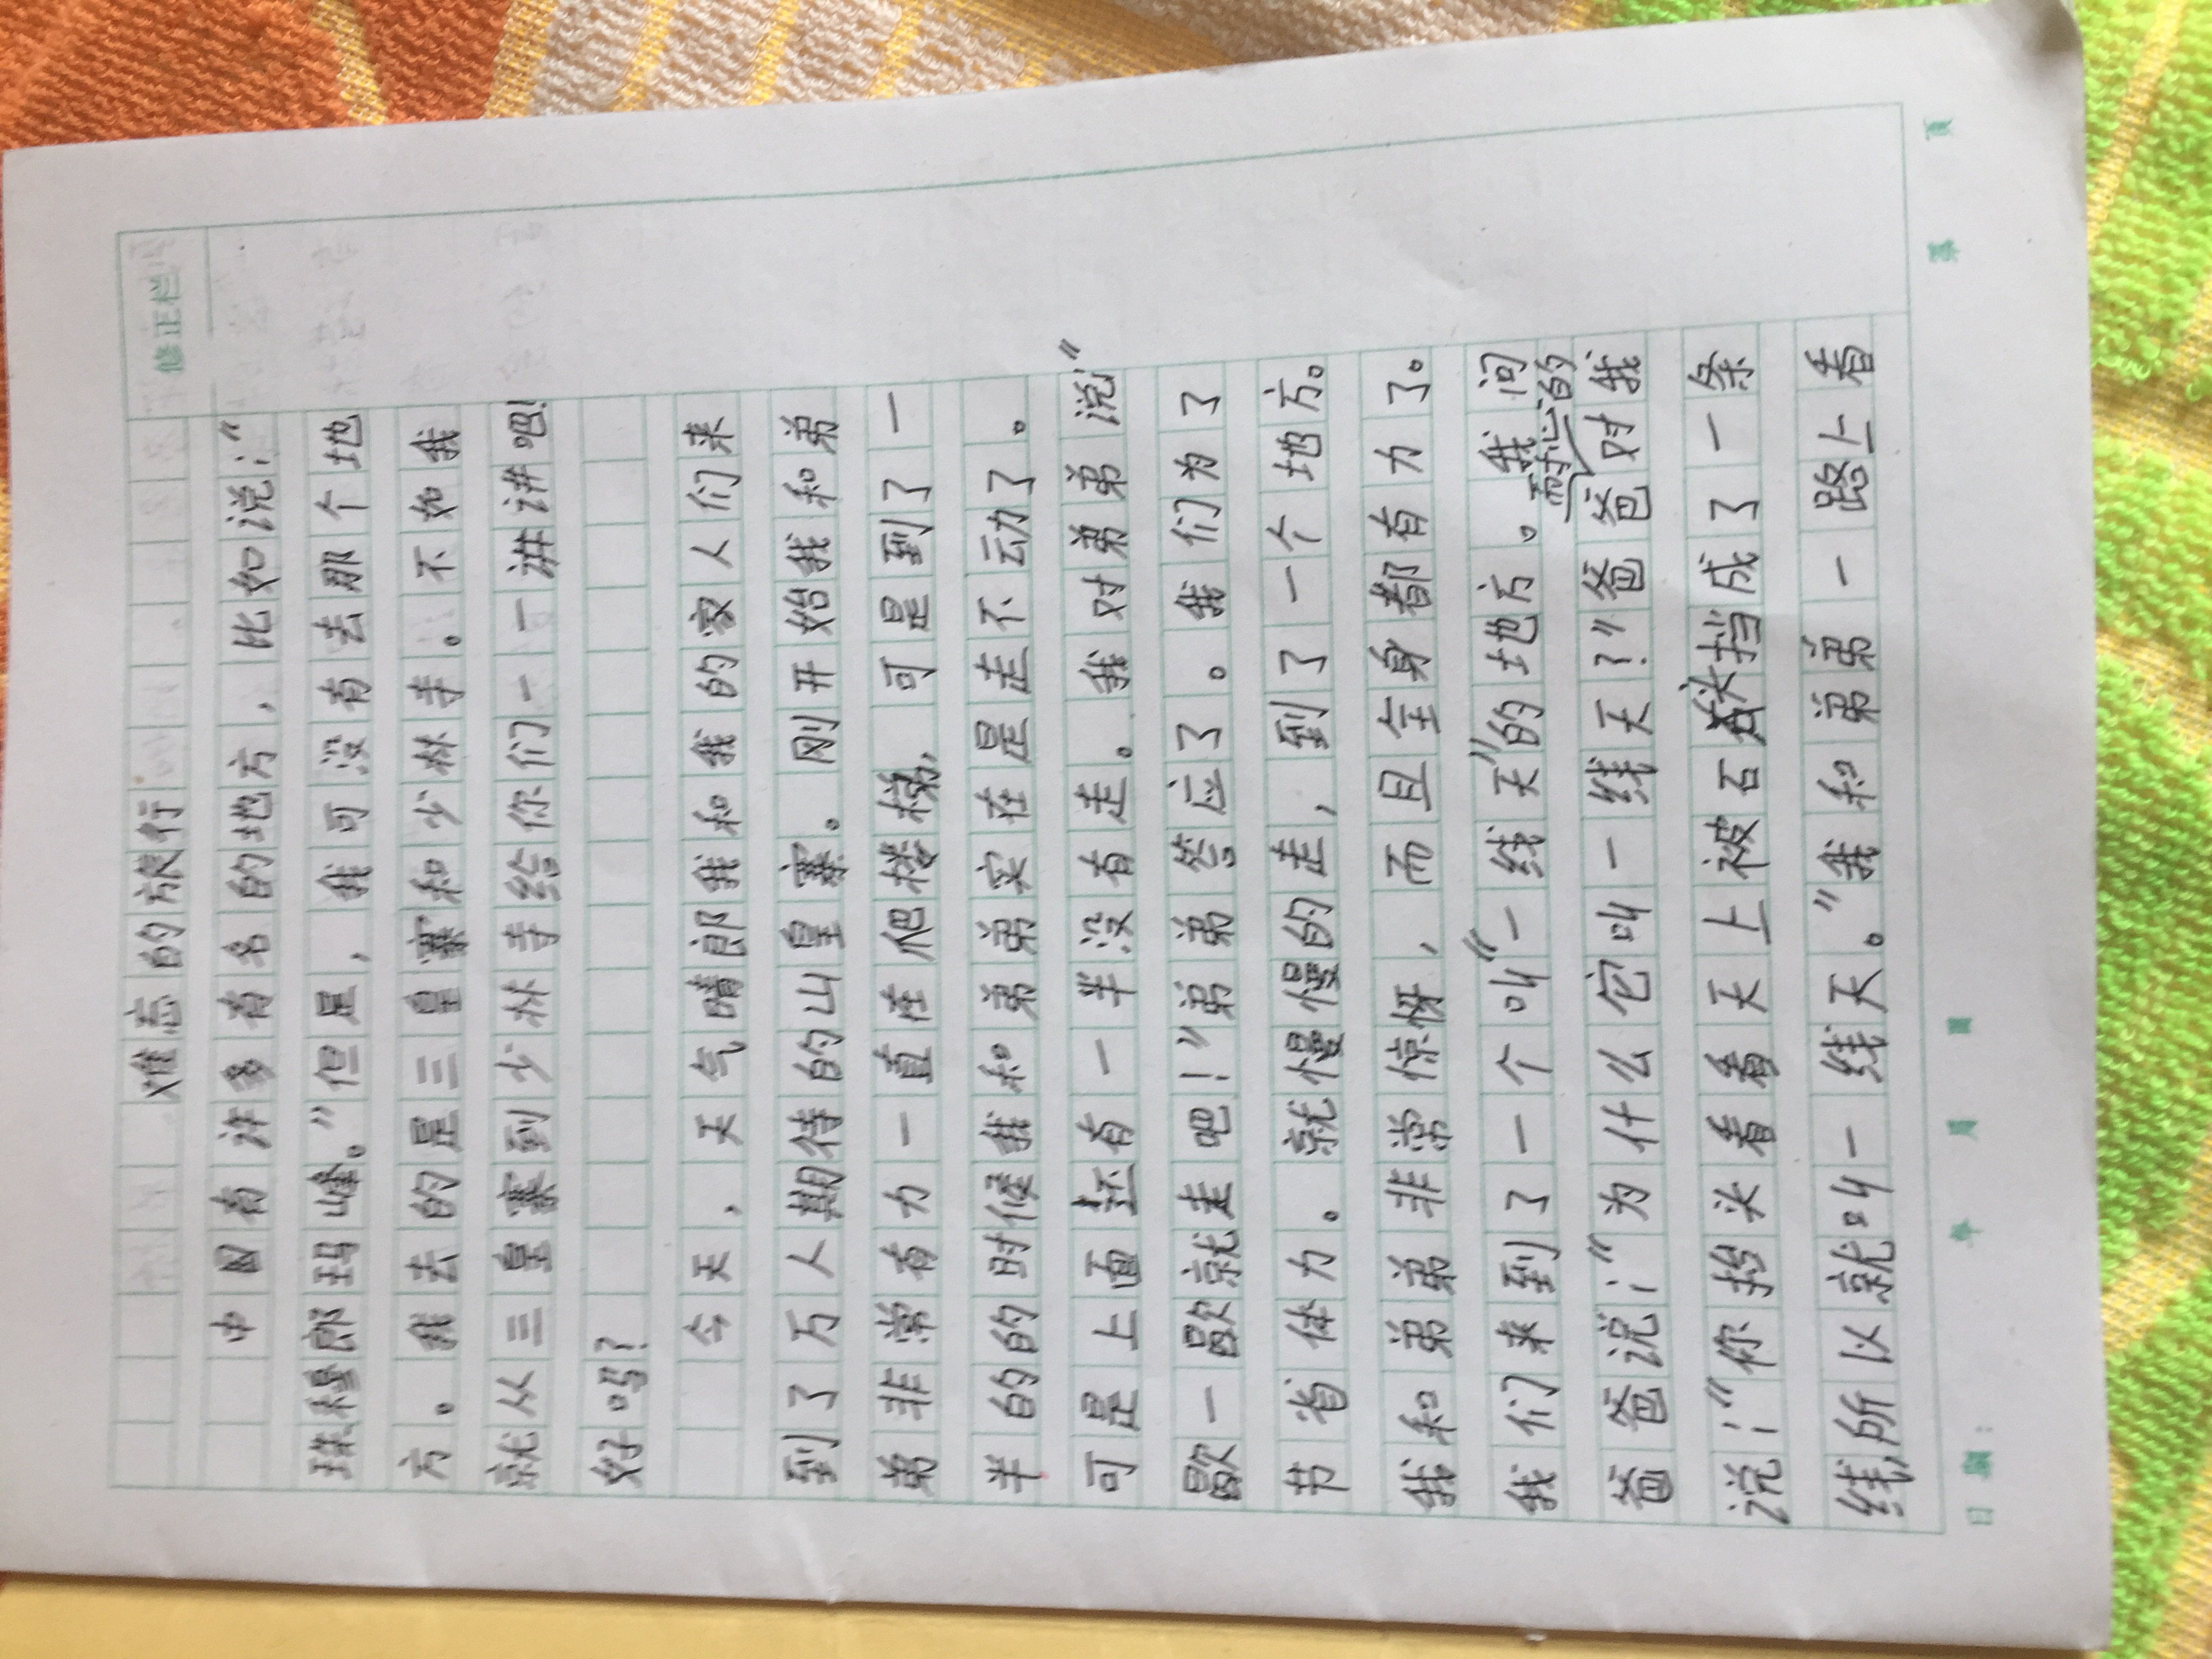 修正栏
难忘的旅行
中国有许多有名的地方，比如说：“
珠穆郎玛峰。”但是，我可没有去那个地
方。我去的是三皇寨和少林寺。不如我
就从三皇寨到少林寺给你们一一讲讲吧！
好吗？
今天，天气晴郎我和我的家人们来
到了万人期待的山皇寨。刚开始我和弟
弟非常有力一直在爬楼梯，可是到了一
半的的时候我和弟弟实在是走不动了。
可是上面还有一半没有走。我对弟弟说：“
歇一歇就走吧！”弟弟答应了。我们为了
节省体力。就慢慢的走，到了一个地方。
我和弟弟非常惊讶，而且全身都有力了。
我们来到了一个叫“一线天”的地方。我问
爸爸说：“为什么它叫一线天？”爸爸对我
耐心的
说：“你抬头看看天上被石头挡成了一条
线，所以就叫一线天。”我和弟弟一路上看
日期： 年 月 日 第 页